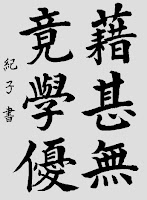 藉甚無
竟學優
紀子書